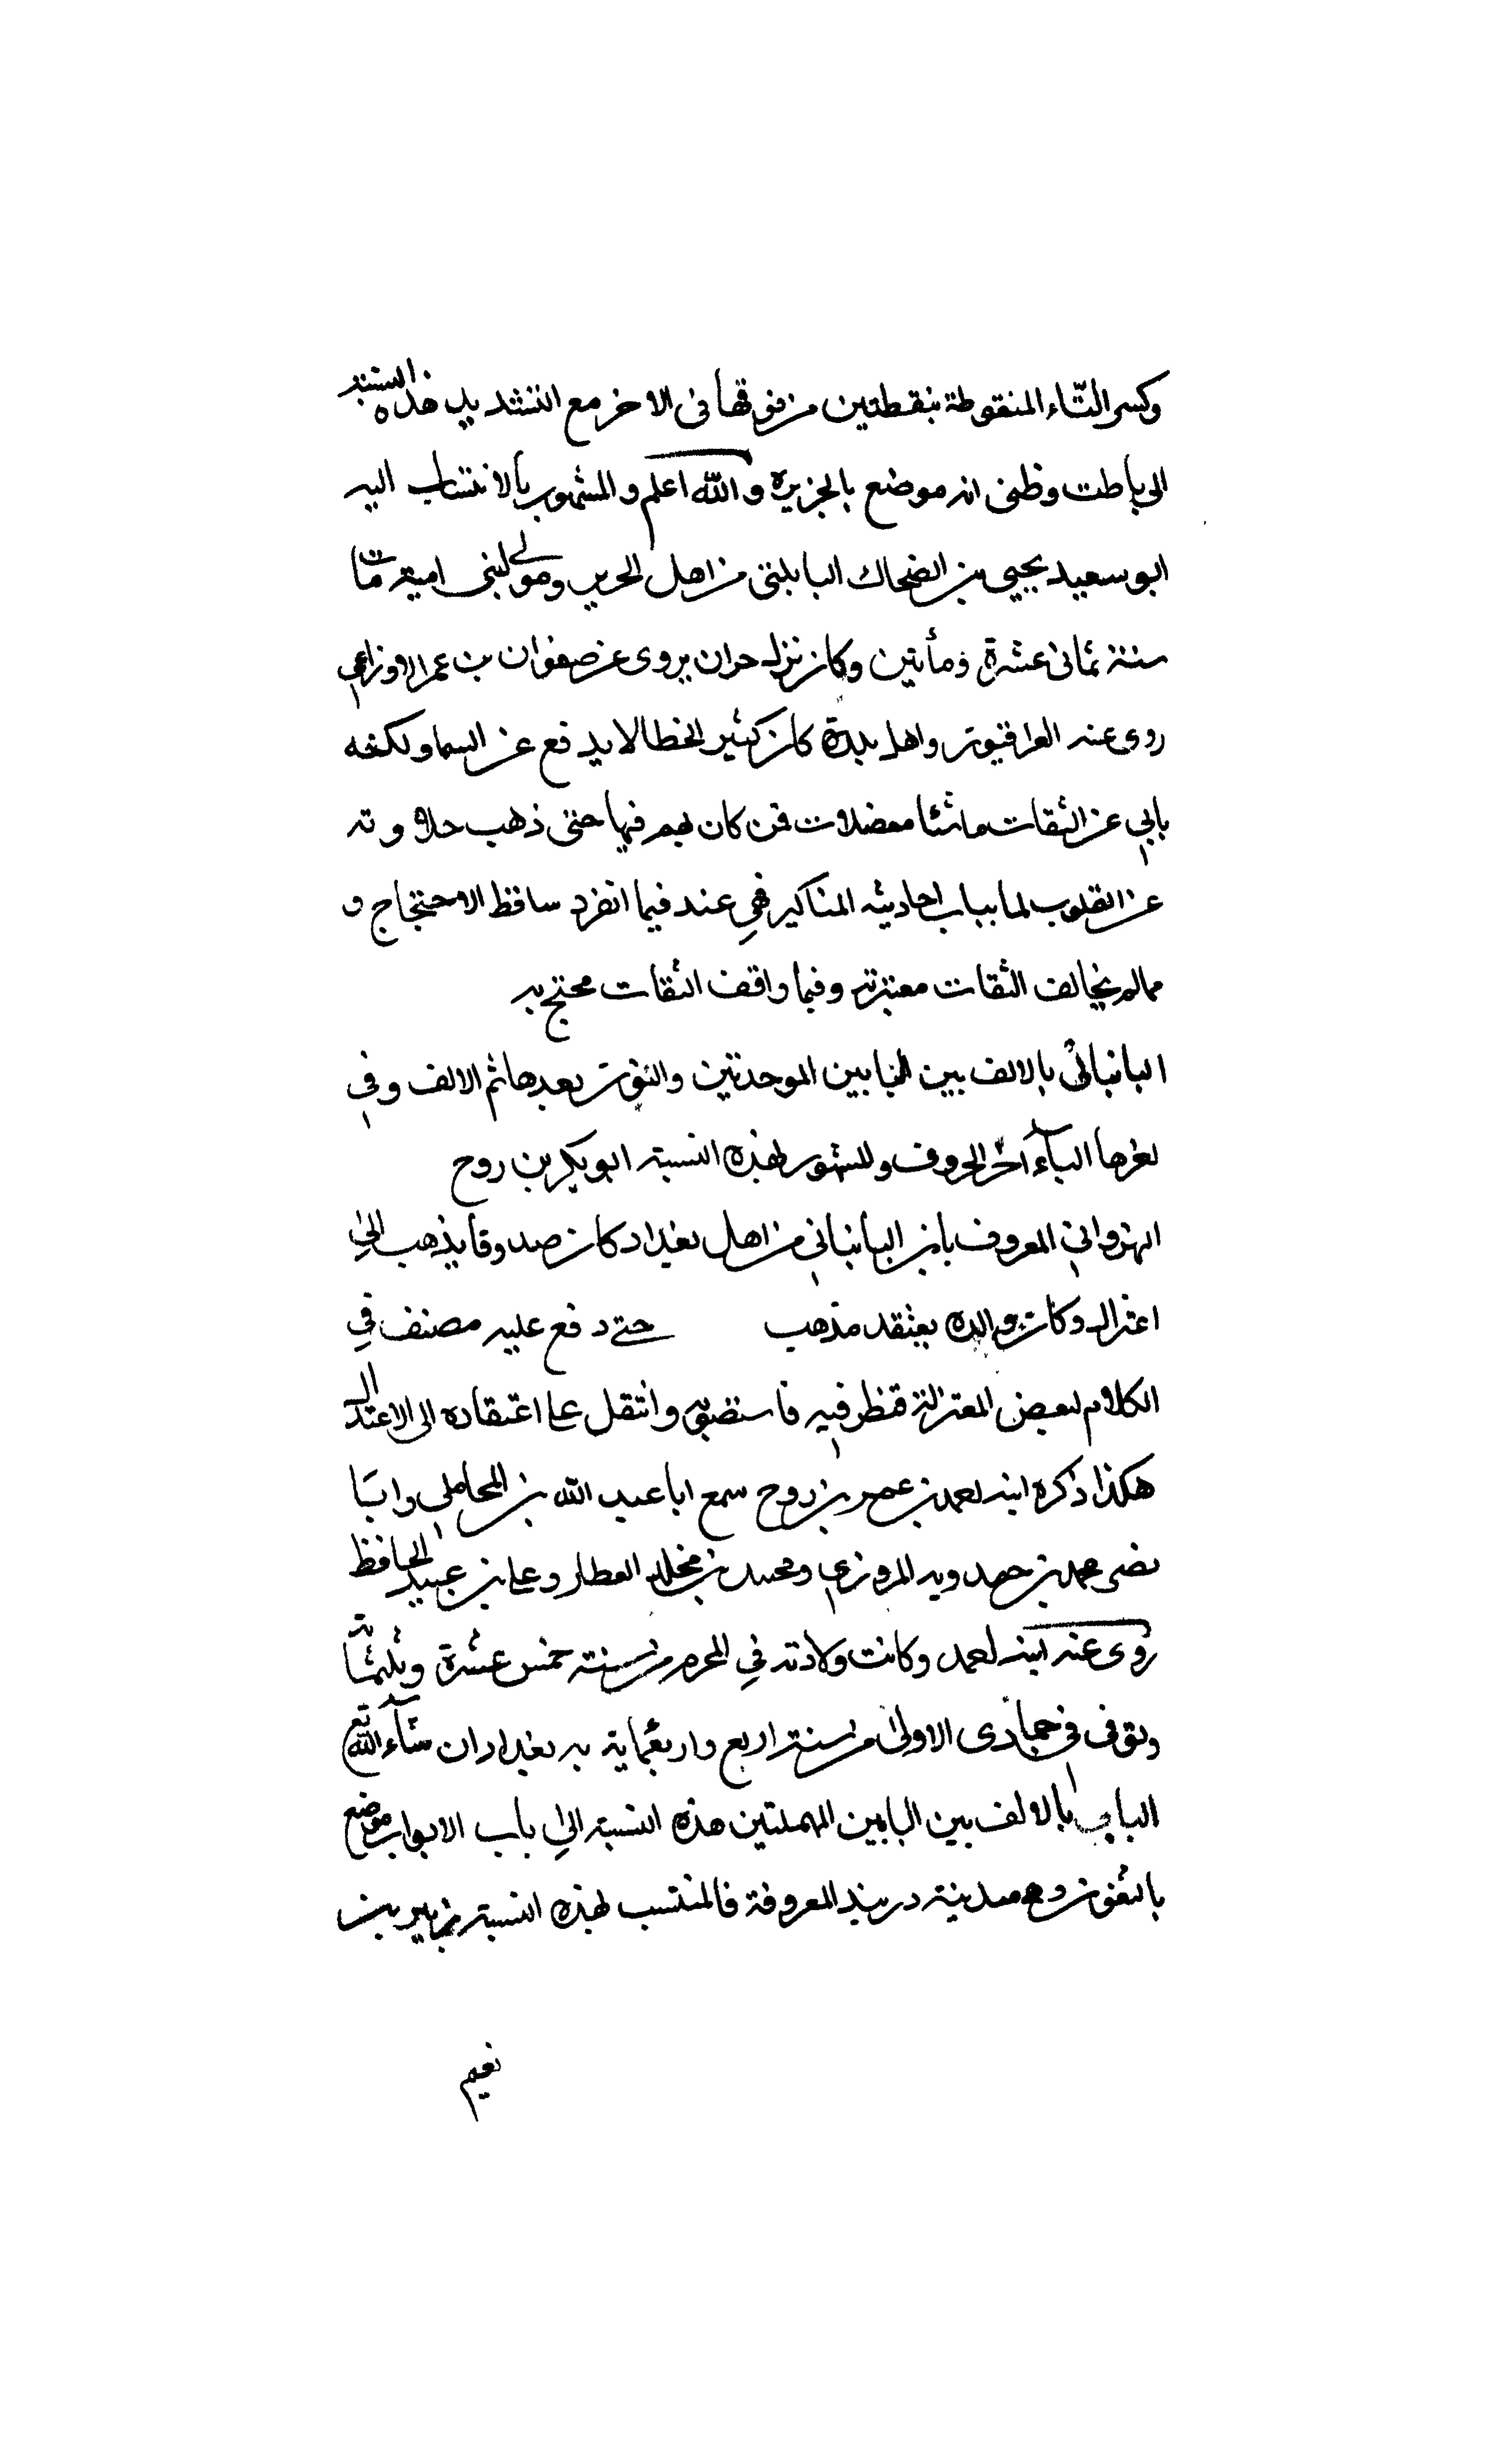 وكسر التّاء المنقوطة بنقطتين من فوقها فى الاخر مع التشديد هذه النسبة
الى باطت وظنى انه موضع بالجزيرة والله اعلم والمشهور بالانتساب اليه
ابو سعيد يحيى بن الضحاك البابلتى من اهل الحرين وهو مولى لبنى امية مات
سنة ثمانى عشرة ومأتين وكان نزل حران يروى عن صفوان بن عمر الاوزاعي
روى عنه العراقيون واهل بلدة كان كثير الخطا لا يدفع عن السما ولكنه
ياتي عن الثقات ماشئا معضلات فمن كان لهم فيها حتى ذهب حلاوته
عن القلوب لما بباب احاديثه المناكير فهي عند فيما انفرد ساقط الاحتجاج و
ممالم يخالف الثقات معتبرته وفيما واقف الثقات محتج به
البانبائى بالالف بين البابين الموحدتين والنون بعدها ثم الالف وفي
لغرها اليآء اخر الحروف والمشهور لهذه النسبة ابو بكر بن روح
النهروانى المعروف بابن البانبانى من اهل بغداد كان صدوقا يذهب الى
اعتزال وكان والده يعتقد مذهب حتى دفع عليه مصنف في
الكلام لبعض المعتزلة فنظر فيه فاستضوبه وانتقل عا اعتقاده الى الاعتدال
هكذا ذكره ابنه لعمد بن عمر بن روح سمع ابا عبد الله بن المحاملى وابا
نصى محمد بن حمدويه المروزي ومحمد بن مخلد العطار وعلى بن عبيد الحافظ
روى عنه ابنه لعمد وكانت ولادته في المحرم من سنة خمس عشرة وثلثمائة
وتوفى فى جمادى الاولى من سنة اربع واربعماية به بغداد ان شآء الله تع
البابي بالالف بين البابين المهملتين هذه النسبة الى باب الابواب موضع
بالثغور وهى مدينة دربند المعروفة فالمنتسب لهذه النسبة زهير بن
نعيم